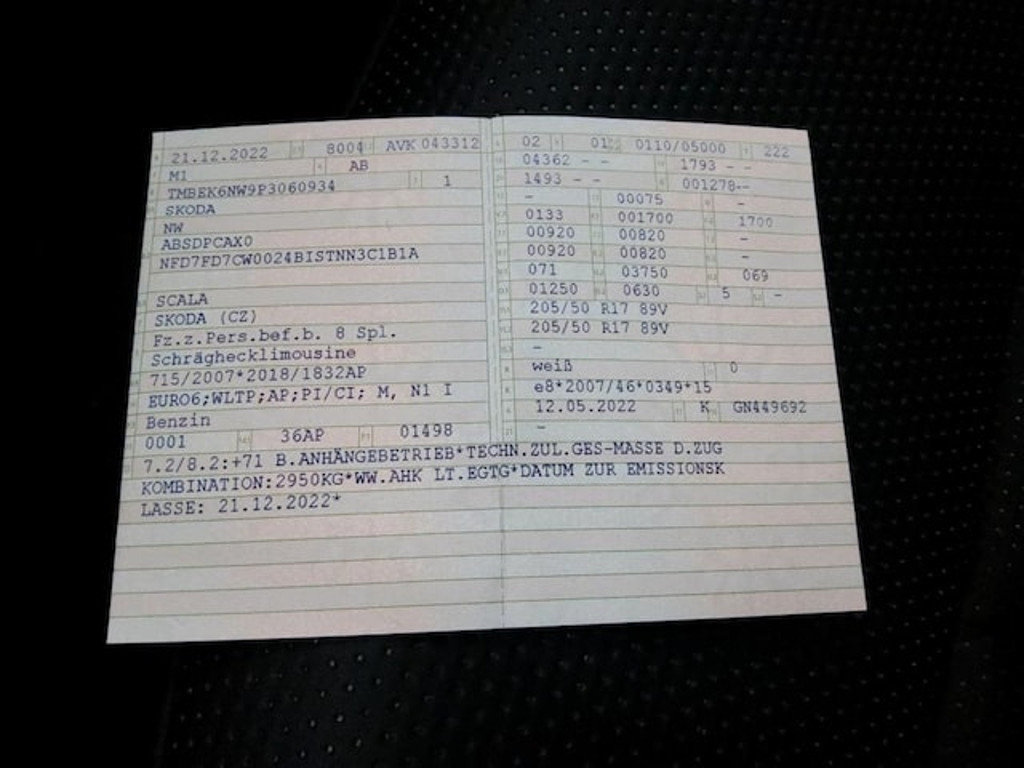 21.12.2022 8004 AVK 043312
M1 AB
TMBEK6NW9P3060934 1
SKODA
NW
ABSDPCAX0
NFD7FD7CW0024BISTNN3C1B1A
SCALA
SKODA (CZ)
Fz.z.Pers.bef.b. 8 Spl.
Schräghecklimousine
715/2007*2018/1832AP
EURO6;WLTP;AP;PI/CI; M, N1 I
Benzin
0001 36AP 01498
02 01 0110/05000 222
04362 - - 1793 - -
1493 - - 001278--
- 00075 -
0133 001700 1700
00920 00820 -
00920 00820 -
071 03750 069
01250 0630 5 -
205/50 R17 89V
205/50 R17 89V
-
weiß 0
e8*2007/46*0349*15
12.05.2022 K GN449692
-
7.2/8.2:+71 B.ANHÄNGEBETRIEB*TECHN.ZUL.GES-MASSE D.ZUG
KOMBINATION:2950KG*WW.AHK LT.EGTG*DATUM ZUR EMISSIONSK
LASSE: 21.12.2022*